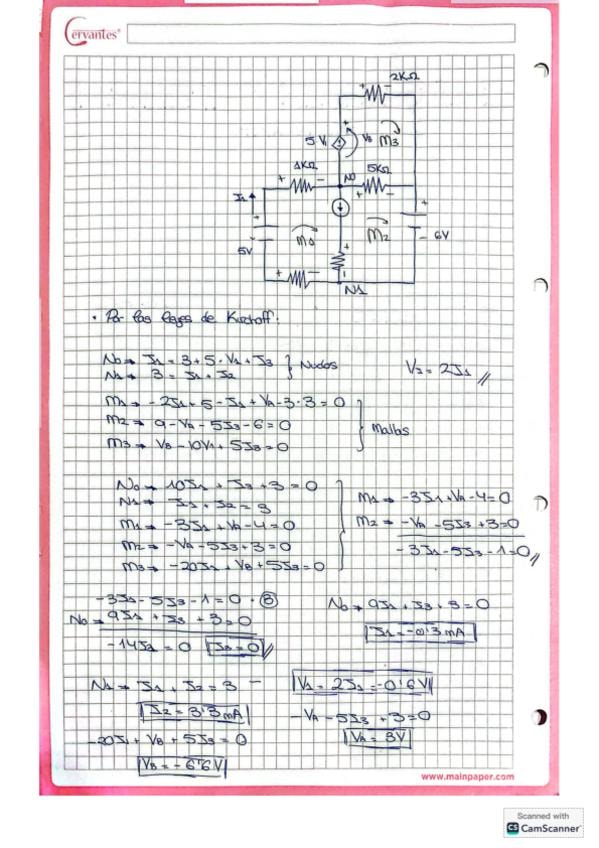 Cervantes®
2KΩ
5V₁
V_B
M3
1KΩ
N0
5KΩ
I₁
5V
M1
M2
6V
N1
• Por las leyes de Kirchoff:
N0 ⇒ I₁ = 3 + 5·V₁ + I₃ } Nudos
N1 ⇒ 3 = I₁ + I₂
V₁ = 2I₁ //
M1 ⇒ -2I₁ + 5 - I₁ + VA - 3·3 = 0
M2 ⇒ 9 - VA - 5I₃ - 6 = 0 } Mallas
M3 ⇒ VB - 10V₁ + 5I₃ = 0
N0 ⇒ 10I₁ + I₃ + 3 = 0
N1 ⇒ I₁ + I₂ = 3
M1 ⇒ -3I₁ + VA - 4 = 0
M2 ⇒ -VA - 5I₃ + 3 = 0
M3 ⇒ -20I₁ + VB + 5I₃ = 0
M1 ⇒ -3I₁ + VA - 4 = 0
M2 ⇒ -VA - 5I₃ + 3 = 0
-3I₁ - 5I₃ - 1 = 0 //
-3I₁ - 5I₃ - 1 = 0 · ③
N0 ⇒ 9I₁ + I₃ + 3 = 0
-14I₃ = 0 I₃ = 0 //
N0 ⇒ 9I₁ + I₃ + 3 = 0
I₁ = -0'3 mA
N1 ⇒ I₁ + I₂ = 3
I₂ = 3'3 mA
-20I₁ + VB + 5I₃ = 0
VB = -6'6V
V₁ = 2I₁ = -0'6V
-VA - 5I₃ + 3 = 0
VA = 3V
www.mainpaper.com
Scanned with
CS CamScanner